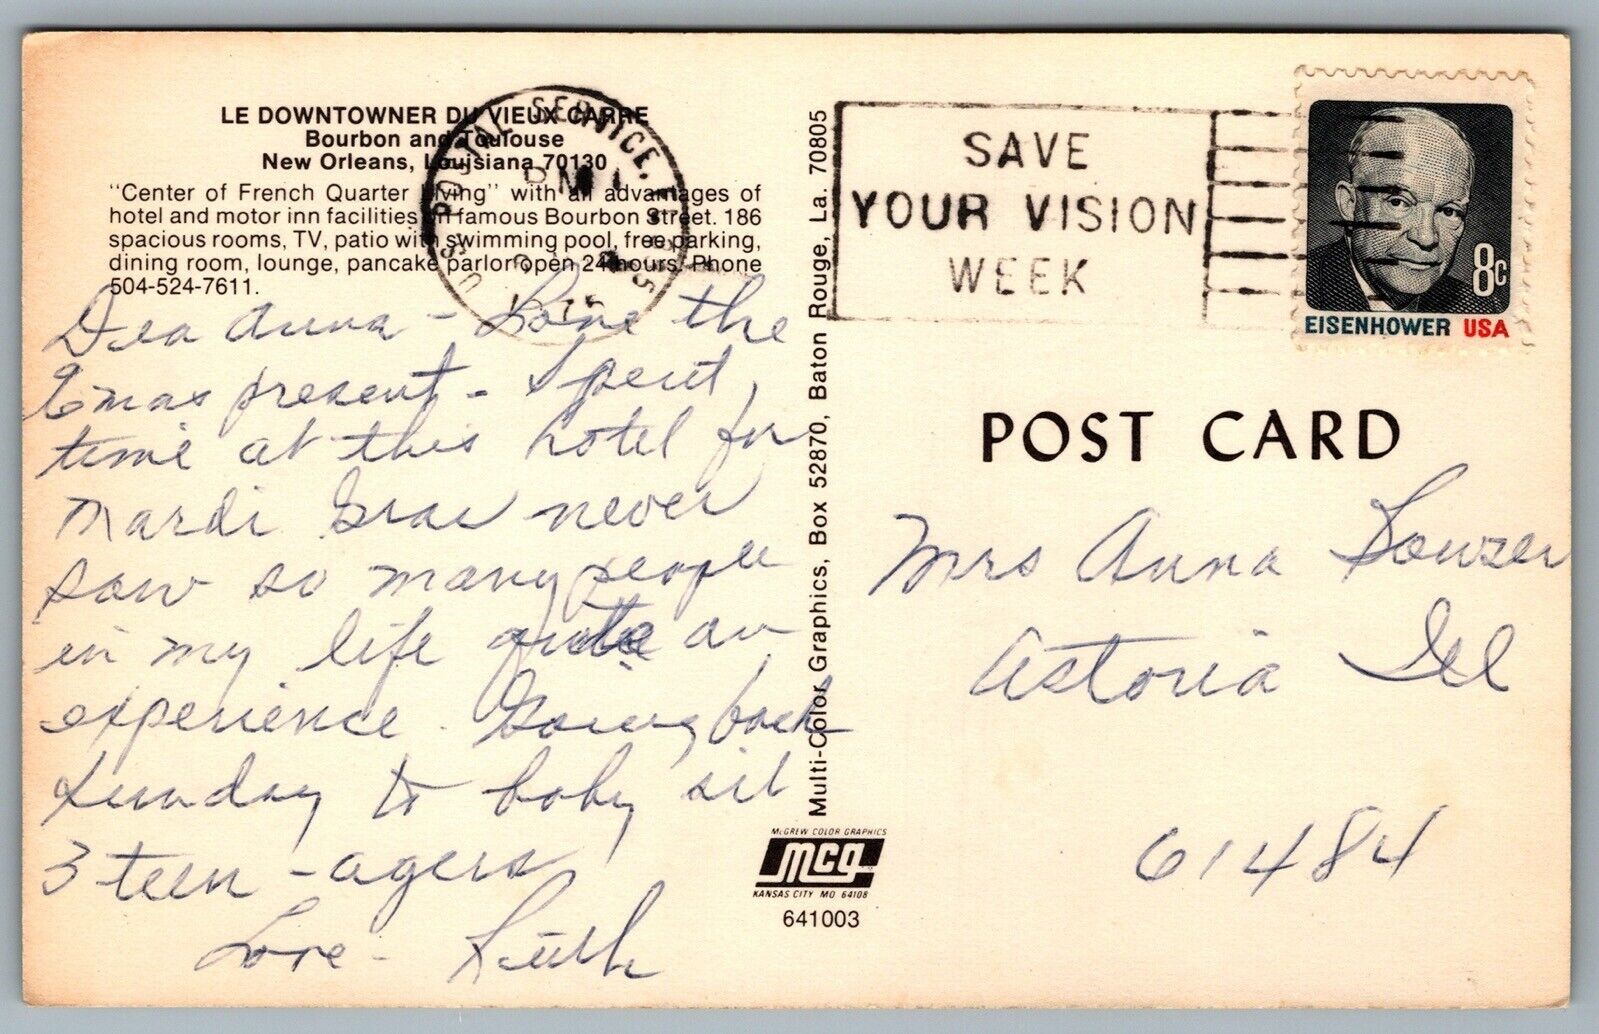 LE DOWNTOWNER DU VIEUX CARRE
Bourbon and Toulouse
New Orleans, Louisiana 70130
"Center of French Quarter Living" with all advantages of
hotel and motor inn facilities in famous Bourbon Street. 186
spacious rooms, TV, patio with swimming pool, free parking,
dining room, lounge, pancake parlor open 24 hours. Phone
504-524-7611.
Dea Anna - Love the
Xmas present - Spent
time at this hotel for
Mardi Gras never
saw so many people
in my life quite an
experience. Going back
Sunday to baby sit
3 teen-agers
Love - Ruth
Multi-Color Graphics, Box 52870, Baton Rouge, La. 70805
McGREW COLOR GRAPHICS
mcg
KANSAS CITY MO 64108
641003
U.S. POSTAL SERVICE.
PM
SAVE
YOUR VISION
WEEK
8c
EISENHOWER USA
POST CARD
Mrs Anna
Astoria Ill
61484